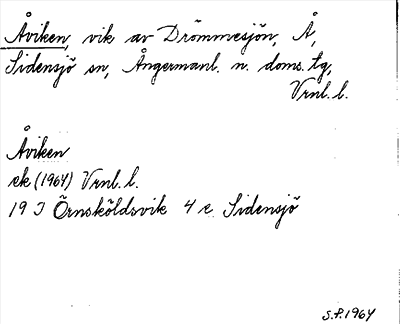 Åviken, vik av Drömmesjön, Å,
Sidensjö sn, Ångermanl. n. doms. tg,
Vrnl. l.
Åviken
ek (1964) Vrnl. l.
19 J Örnsköldsvik 4 e Sidensjö
S.P. 1964